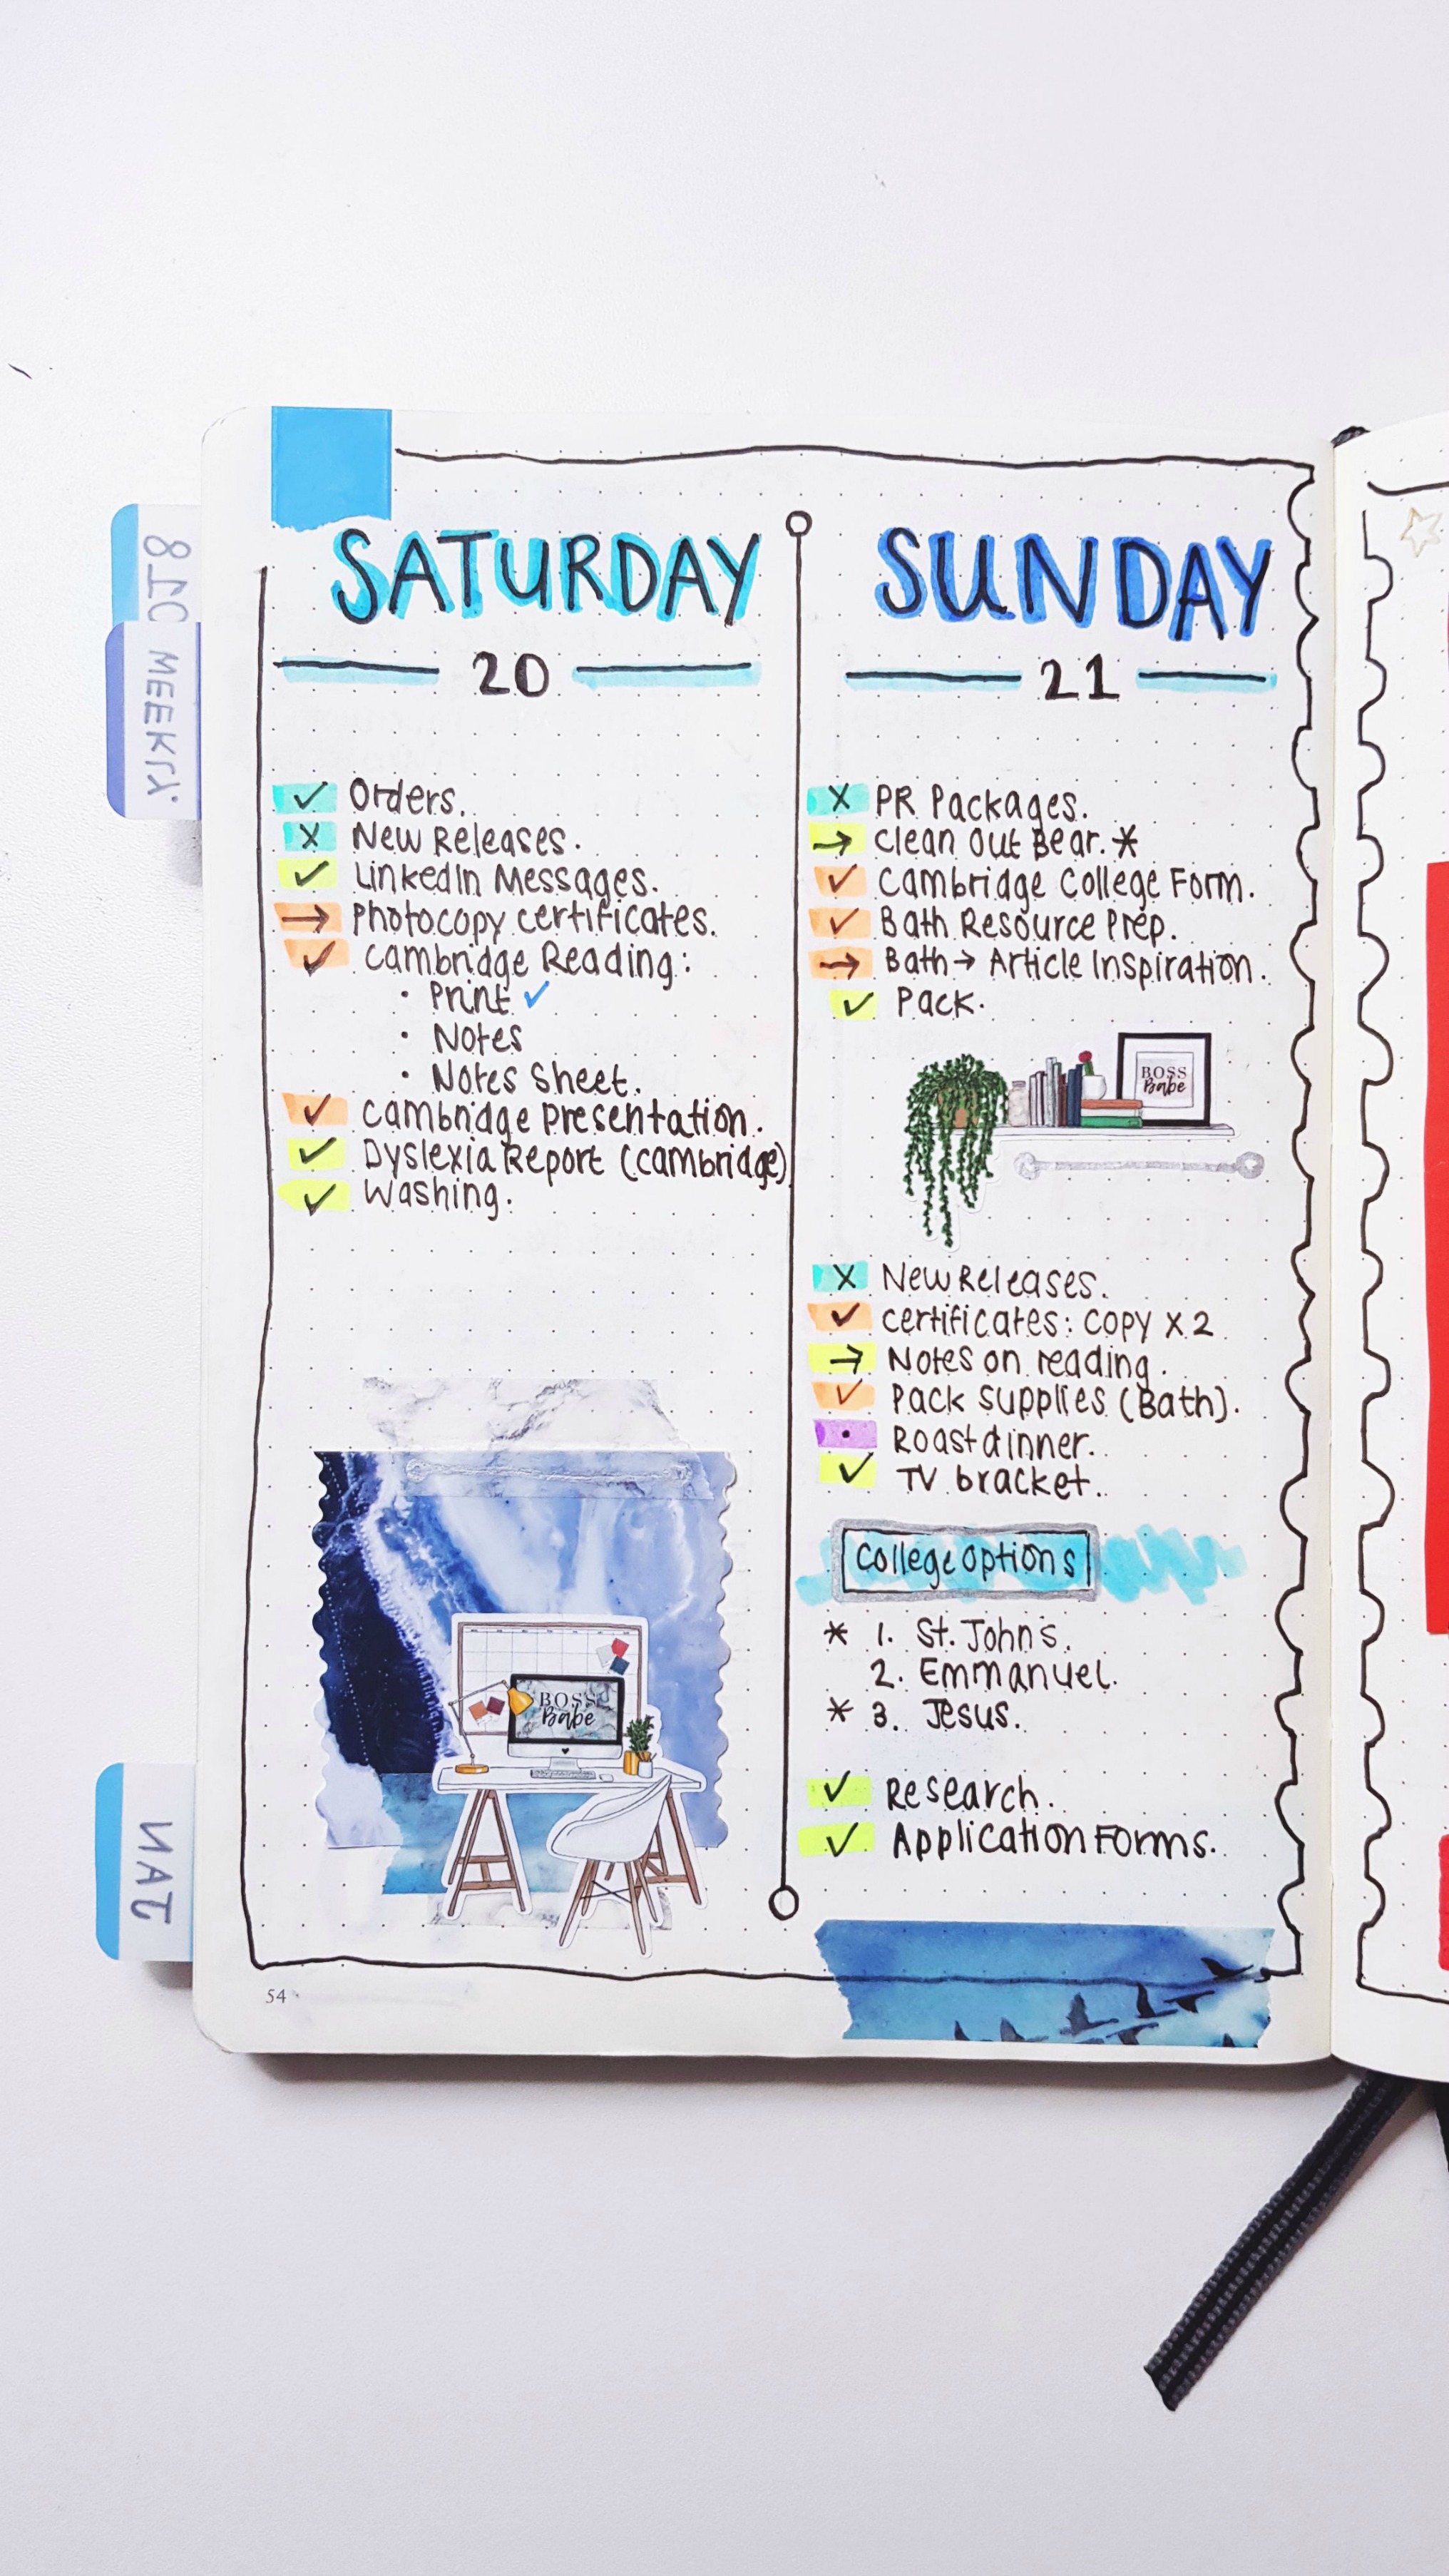 SATURDAY
20
✓ Orders.
X New Releases.
✓ LinkedIn Messages.
→ Photocopy certificates.
✓ Cambridge Reading:
• Print ✓
• Notes
• Notes Sheet.
✓ Cambridge Presentation.
✓ Dyslexia Report (Cambridge)
✓ Washing.
BOSS
Babe
54
SUNDAY
21
X PR Packages.
→ Clean Out Bear. *
✓ Cambridge College Form.
✓ Bath Resource Prep.
→ Bath → Article Inspiration.
✓ Pack.
BOSS
Babe
X New Releases.
✓ Certificates: Copy x 2
→ Notes on reading.
✓ Pack Supplies (Bath).
• Roast dinner.
✓ TV bracket.
College Options
* 1. St. Johns.
2. Emmanuel.
* 3. Jesus.
✓ Research.
✓ Application Forms.
WEEKLY.
JAN